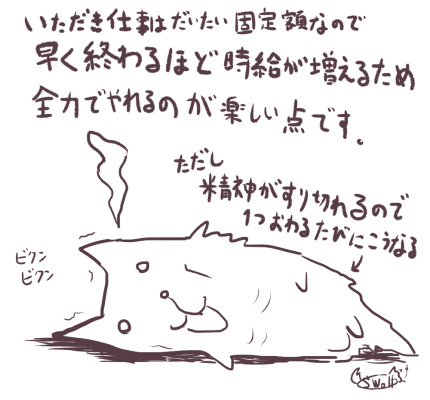 いただき仕事はだいたい固定額なので
早く終わるほど時給が増えるため
全力でやれるのが楽しい点です。
ただし
精神がすり切れるので
1つおわるたびにこうなる
ビクン
ビクン